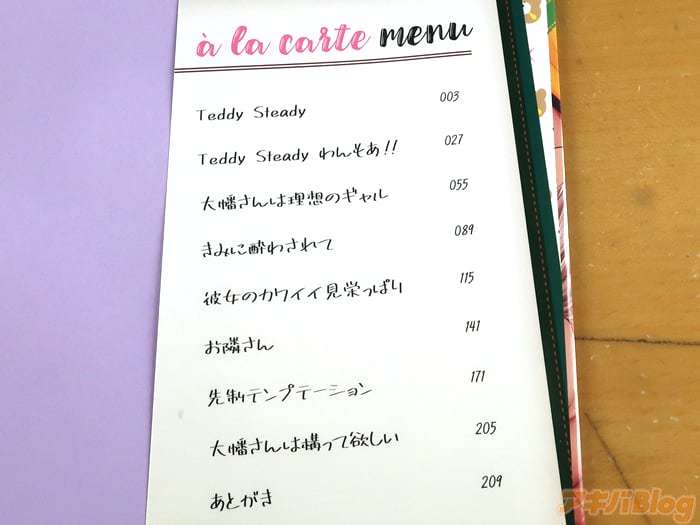 à la carte menu
Teddy Steady 003
Teddy Steady わんもあ!! 027
大幡さんは理想のギャル 055
きみに酔わされて 089
彼女のカワイイ見栄っぱり 115
お隣さん 141
先制テンプテーション 171
大幡さんは構って欲しい 205
あとがき 209
アキバBlog